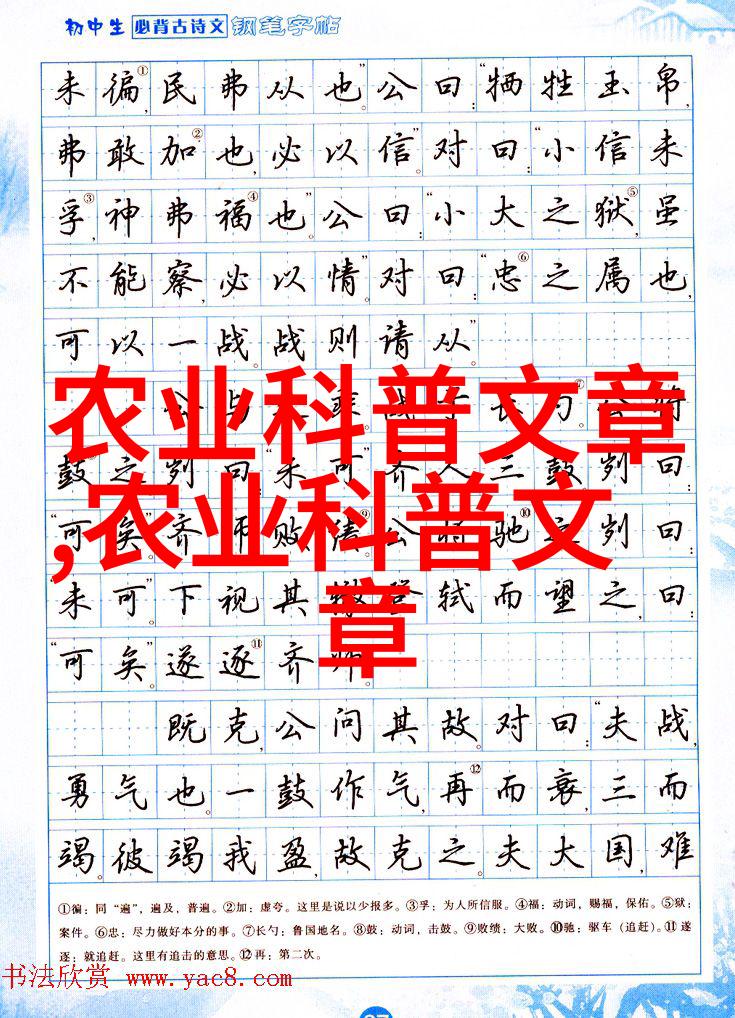 初中生 必背古诗文 钢笔字帖
未徧①，民弗从也。”公曰：“牺牲玉帛，
弗敢加②也，必以信。”对曰：“小信未
孚③，神弗福④也。”公曰：“小大之狱⑤，虽
不能察，必以情。”对曰：“忠⑥之属也，
可以一战。战则请从。”
公与 战于长勺⑦。公将
鼓⑧之。刿曰：“未可。”齐人三鼓。刿曰：
“可矣。”齐师败绩⑨。公将驰⑩之。刿曰：
“未可。”下视其 登轼而望之，曰：
“可矣。”遂逐⑪齐师。
农业科普文章
,农业科普文
章
既克，公问其故。对曰：“夫战，
勇气也。一鼓作气，再⑫而衰，三而
竭。彼竭我盈，故克之。夫大国，难
①徧：同“遍”，遍及，普遍。②加：虚夸。这里是说以少报多。③孚：为人所信服。④福：动词，赐福，保佑。⑤狱：
案件。⑥忠：尽力做好本分的事。⑦长勺：鲁国地名。⑧鼓：动词，击鼓。⑨败绩：大败。⑩驰：驱车（追赶）。⑪遂
逐：就追赶。这里有追击的意思。⑫再：第二次。
书法欣赏 www.yac8.com